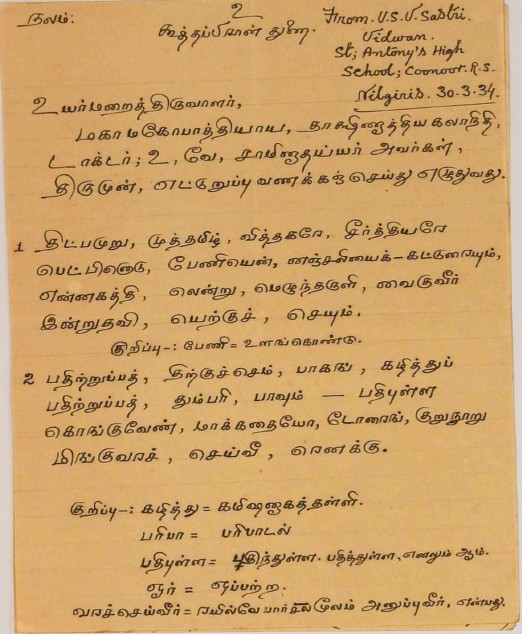 நலம்:
உ
கூத்தப்பிரான் துணை.
From. V.S.V. Sastri.
Vidwan.
St; Antony's High
School; Coonoor. R.S.
Nilgiris. 30.3.34.
உயர்மறைத்திருவாளர்,
மகாமகோபாத்தியாய, தாக்ஷிணாத்திய கலாநிதி,
டாக்டர்; உ, வே, சாமிநாதய்யர் அவர்கள்,
திருமுன், எட்டுறுப்பு வணக்கஞ்செய்து எழுதுவது.
1 திட்பமுறு, முத்தமிழ், வித்தகரே, சீர்த்தியரே
பெட்பினொடு, பேணியென், னஞ்சலியைக்-கட்டுரையும்,
என்னகத்தி, லென்று, மெழுந்தருளி, வைகுவீர்
இன்றுதவி, யெற்குச், செயும்.
குறிப்பு-: பேணி = உளங்கொண்டு.
2 பதிற்றுப்பத், திற்குச்செம், பாகங், கழித்துப்
பதிற்றுப்பத், தும்பரி, பாவும் — பதிபுள்ள
கொங்குவேண், மாக்கதையோ, டோரைங், குறுநூறு
மிங்குவரச், செய்வீ, ரெனக்கு.
குறிப்பு-: கழித்து = கமிஷனகத்தள்ளி.
பரிபா = பரிபாடல்
பதிபுள்ள = பதிந்துள்ள. பதித்துள்ள, எனலும் ஆம்.
ஓர் = ஒப்பற்ற.
வரச்செய்வீர் = ரயில்வே பார்சல் மூலம் அனுப்புவீர், என்பது.